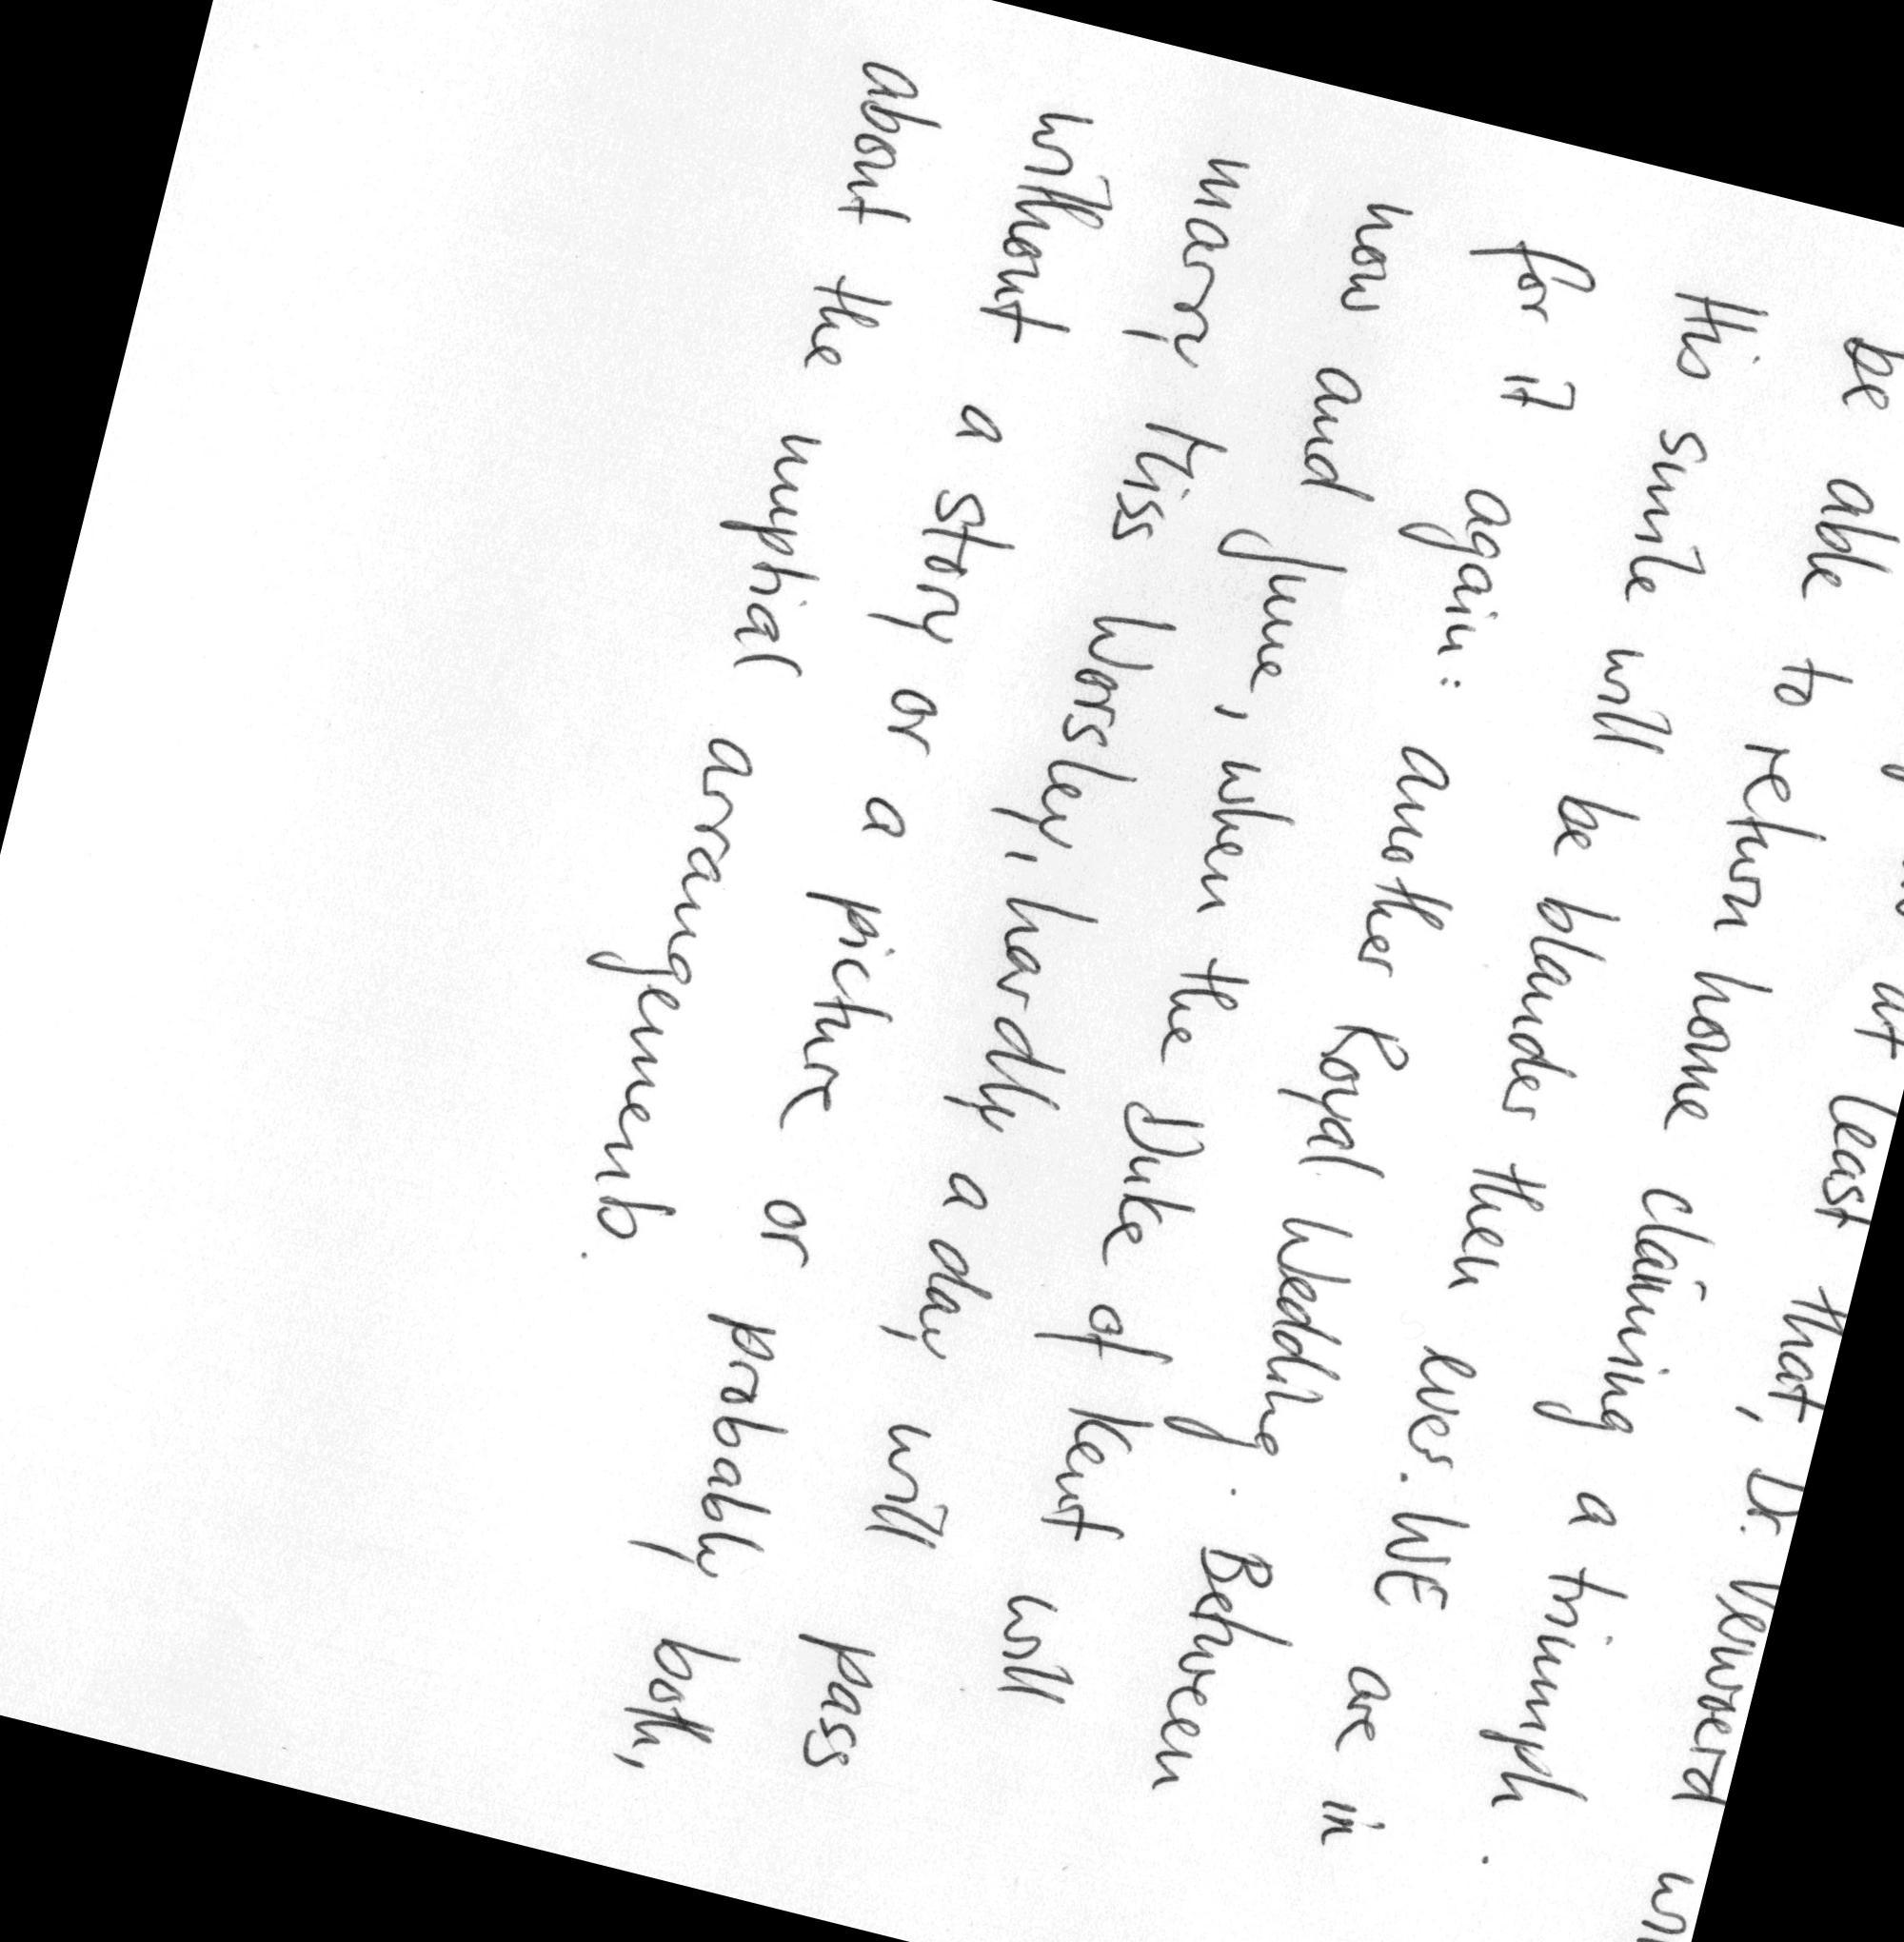 at least that, Dr. Verwoerd
be able to return home claiming a triumph.
His smile will be blander then ever. WE are in
for it again: another Royal Wedding. Between
now and June, when the Duke of Kent will
marry Miss Worsley, hardly a day will pass
without a story or a picture or probably both,
about the nuptial arrangements.